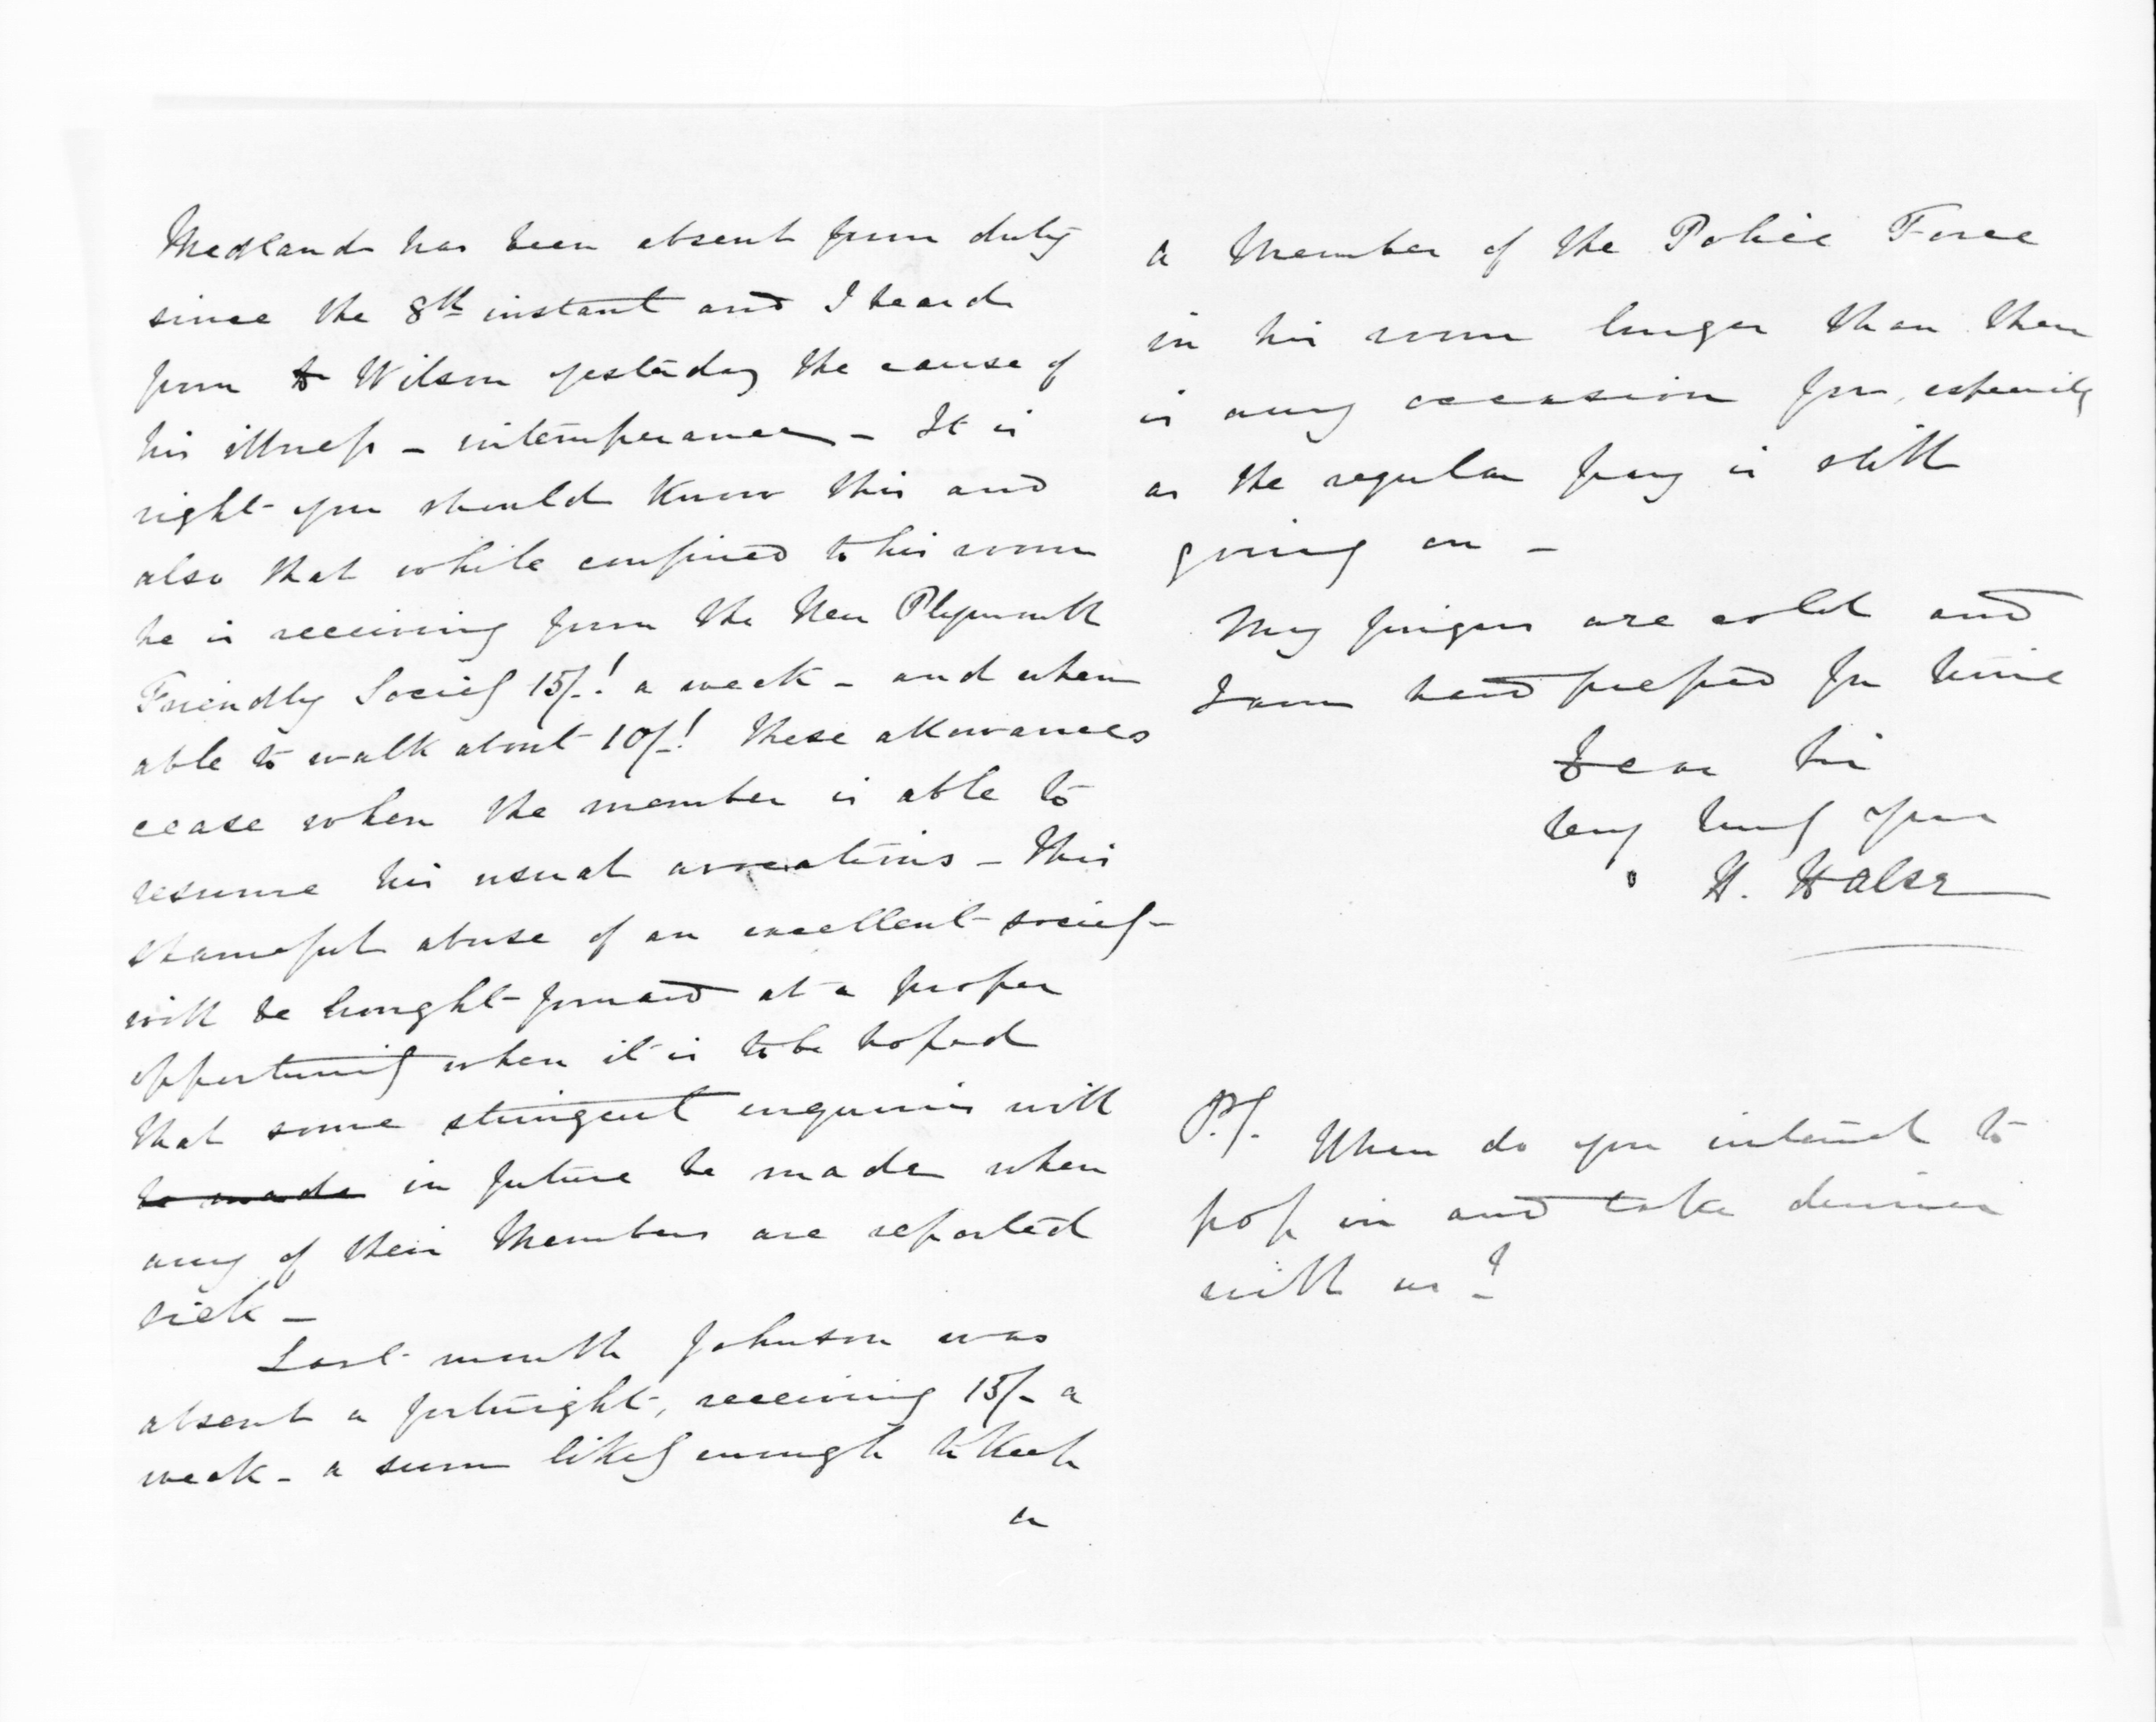 Medland has been absent from duty
since the 8th instant and I heard
from Dr Wilson yesterday the cause of
his illness – intemperance – It is
right you should know this and
also that while confined to his room
he is receiving from the New Plymouth
Friendly Society 15/-! a week – and when
able to walk about 10/-! These allowances
cease when the member is able to
resume his usual avocations – This
shameful abuse of an excellent society
will be brought forward at a proper
opportunity when it is to be hoped
that some stringent enquiries will
be made in future be made when
any of their Members are reported
sick –
Last month Johnson was
absent a fortnight, receiving 15/- a
week – a sum likely enough to keep
a
a Member of the Police Force
in his room longer than there
is any occasion for, especially
as the regular pay is still
going on –
My fingers are cold and
I am hard pressed for time
Dear Sir
Very truly yours
H. Halse
P.S. When do you intend to
pop in and take dinner
with us?